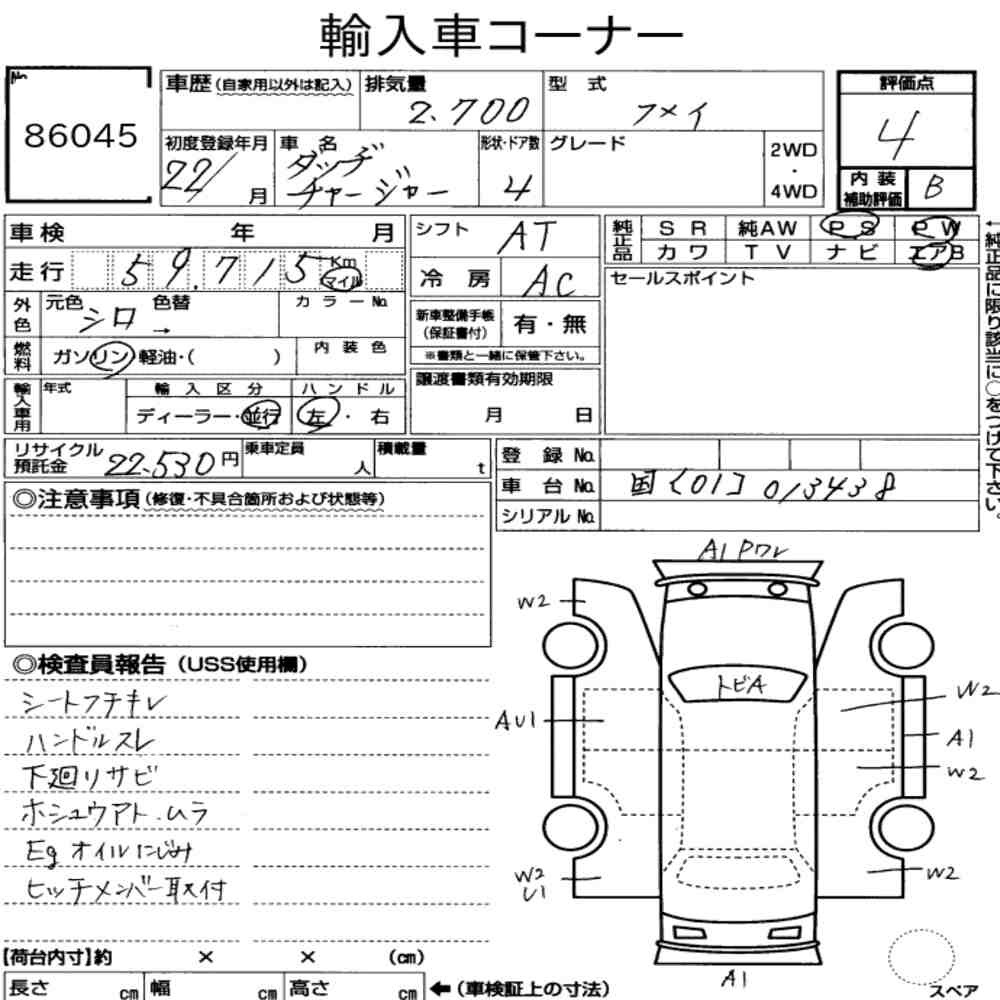 輸入車コーナー
No.
86045
車歴(自家用以外は記入) 排気量 型式 評価点
2.700 フメイ 4
初度登録年月 車名 形状・ドア数 グレード 2WD・4WD
22/ 月 ダッヂ チャージャー 4
内装補助評価 B
車検 年 月 シフト AT
純正品 SR 純AW PS PW
カワ TV ナビ エアB
走行 59.715 Km マイル 冷房 AC
セールスポイント
←純正品に限り該当に○をつけて下さい。
外色 元色 シロ 色替 → カラーNo.
新車整備手帳(保証書付) 有・無
※書類と一緒に保管下さい。
燃料 ガソリン・軽油・( ) 内装色
譲渡書類有効期限
月 日
輸入車用 年式 輸入区分 ハンドル
ディーラー・並行 左・右
リサイクル預託金 22.530円 乗車定員 人 積載量 t
登録No.
車台No. 国[01]013438
シリアルNo.
◎注意事項(修復・不具合箇所および状態等)
A1 Pワレ
W2
トビA
AU1
W2
A1
W2
W2
U1
W2
A1
スペア
◎検査員報告(USS使用欄)
シートフチキレ
ハンドルスレ
下廻リサビ
ホシュウアト.ムラ
Eg オイルにじみ
ヒッチメンバー取付
【荷台内寸】約 × × (cm)
長さ cm 幅 cm 高さ cm ←(車検証上の寸法)